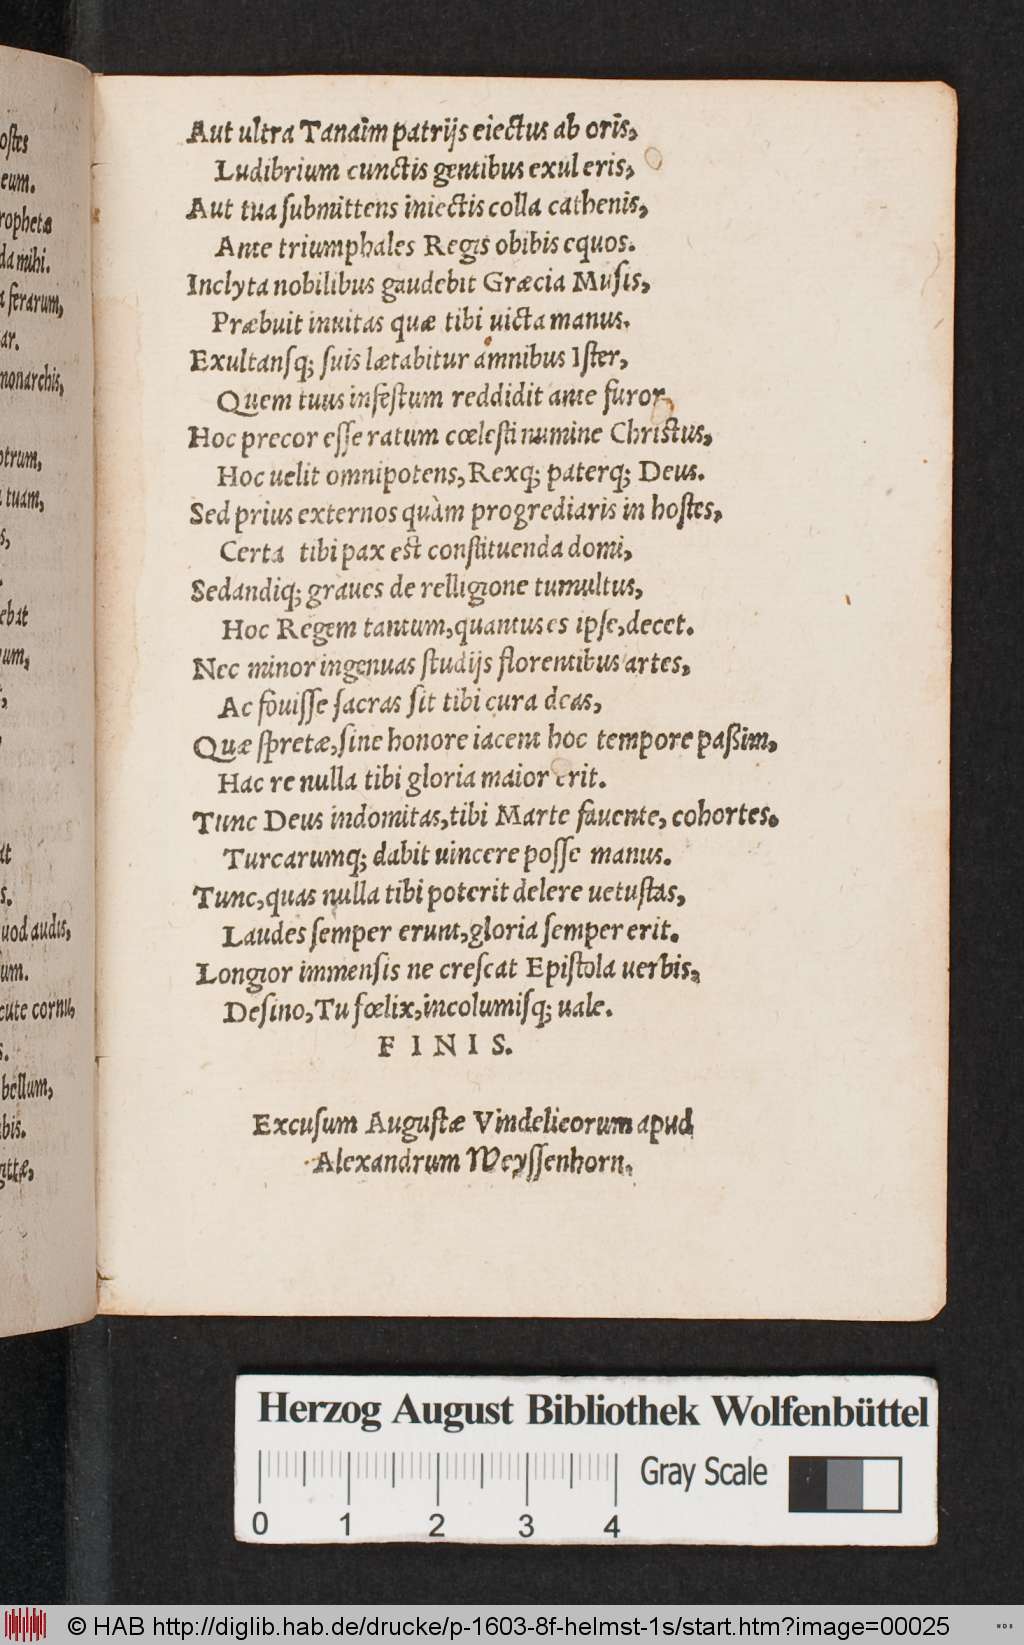 ostes
eum.
rophetæ
da mihi.
a ferarum,
ar.
monarchis,
otrum,
tuam,
s,
ebat
um,
at
s.
uod audis,
sum.
cute cornu,
s.
bellum,
bis.
gittæ,
Aut ultra Tanaim patrijs eiectus ab oris,
Ludibrium cunctis gentibus exul eris,
Aut tua submittens iniectis colla cathenis,
Ante triumphales Regis obibis equos.
Inclyta nobilibus gaudebit Græcia Musis,
Præbuit inuitas quæ tibi uicta manus.
Exultansq; suis lætabitur amnibus Ister,
Quem tuus infestum reddidit ante furor.
Hoc precor esse ratum cœlesti numine Christus,
Hoc uelit omnipotens, Rexq; paterq; Deus.
Sed prius externos quàm progrediaris in hostes,
Certa tibi pax est constituenda domi,
Sedandiq; graues de relligione tumultus,
Hoc Regem tantum, quantus es ipse, decet.
Nec minor ingenuas studijs florentibus artes,
Ac fouisse sacras sit tibi cura deas,
Quæ spretæ, sine honore iacent hoc tempore paßim,
Hac re nulla tibi gloria maior erit.
Tunc Deus indomitas, tibi Marte fauente, cohortes.
Turcarumq; dabit uincere posse manus.
Tunc, quas nulla tibi poterit delere uetustas,
Laudes semper erunt, gloria semper erit.
Longior immensis ne crescat Epistola uerbis,
Desino, Tu fœlix, incolumisq; uale.
FINIS.
Excusum Augustæ Vindelicorum apud
Alexandrum Weyssenhorn.
Herzog August Bibliothek Wolfenbüttel
Gray Scale
0 1 2 3 4
© HAB http://diglib.hab.de/drucke/p-1603-8f-helmst-1s/start.htm?image=00025